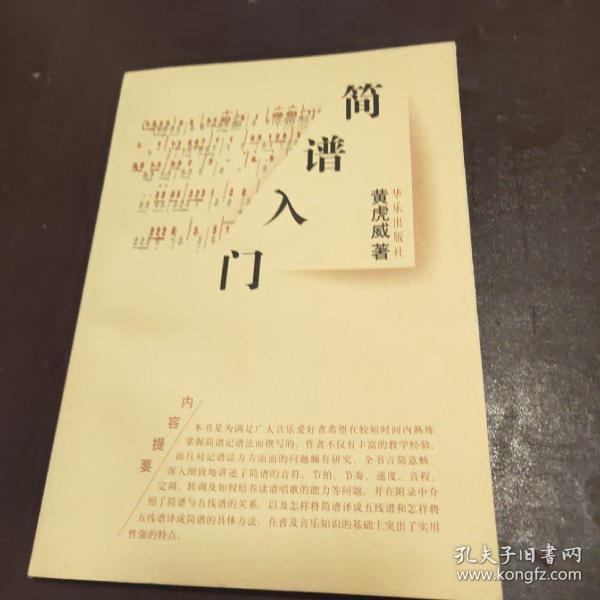 简谱入门
黄虎威著
华乐出版社
内容提要
本书是为满足广大音乐爱好者希望在较短时间内熟练
掌握简谱记谱法而撰写的。作者不仅有丰富的教学经验，
而且对记谱法方方面面的问题颇有研究。全书言简意赅、
深入细致地讲述了简谱的音符、节拍、节奏、速度、音程、
定调、转调及如何培养读谱唱歌的能力等问题，并在附录中介
绍了简谱与五线谱的关系，以及怎样将简谱译成五线谱和怎样将
五线谱译成简谱的具体方法，在普及音乐知识的基础上突出了实用
性强的特点。
孔夫子旧书网
www.kongfz.com